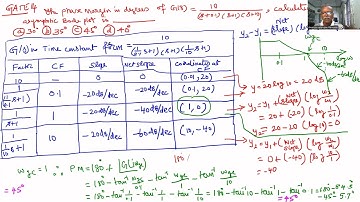 GATE14 The phase margin in degrees of G(s) = 10 / (s+0.1)(s+1)(s+10), calculate
asymptotic Bode plot is
ⓐ 30° ⓑ 35° ⓒ 45° ⓓ 40°
G(s) in Time constant form = 10 / (1/0.1 s+1)(s+1)(1/10 s+1)
Factor CF Slope Net slope coordinates at
10 — 0 0 (0.01, 20)
1/(1/0.1 s+1) 0.1 -20db/dec -20db/dec (0.1, 20)
1/(s+1) 1 -20db/dec -40db/dec (1, 0)
1/(1/10 s+1) 10 -20db/dec -60db/dec (10, -40)
y2 - y1 = (Net slope)(log w2/w1)
0.1
y = 20 log 10 = 20 dB
y2 = y1 + (Net slope)(log w2/w1)
= 20 + (-20)(log 1/0.1)
y2 = 20 - 20 (log 10) = 0
y2 = y1 + (Net slope)(log w2/w1)
= 0 + (-40)(log 10/1)
= -40
wgc = 1 ∴ PM = 180 + ∠G(j)wgc
= 180 - tan⁻¹ wgc/0.1 - tan⁻¹ wgc/1 - tan⁻¹ wgc/10
= 180 - tan⁻¹ 1/0.1 - tan⁻¹ 1/1 - tan⁻¹ 1/10 = 180 - tan⁻¹ 10 - tan⁻¹ 1 - tan⁻¹ 0.1
= 45°